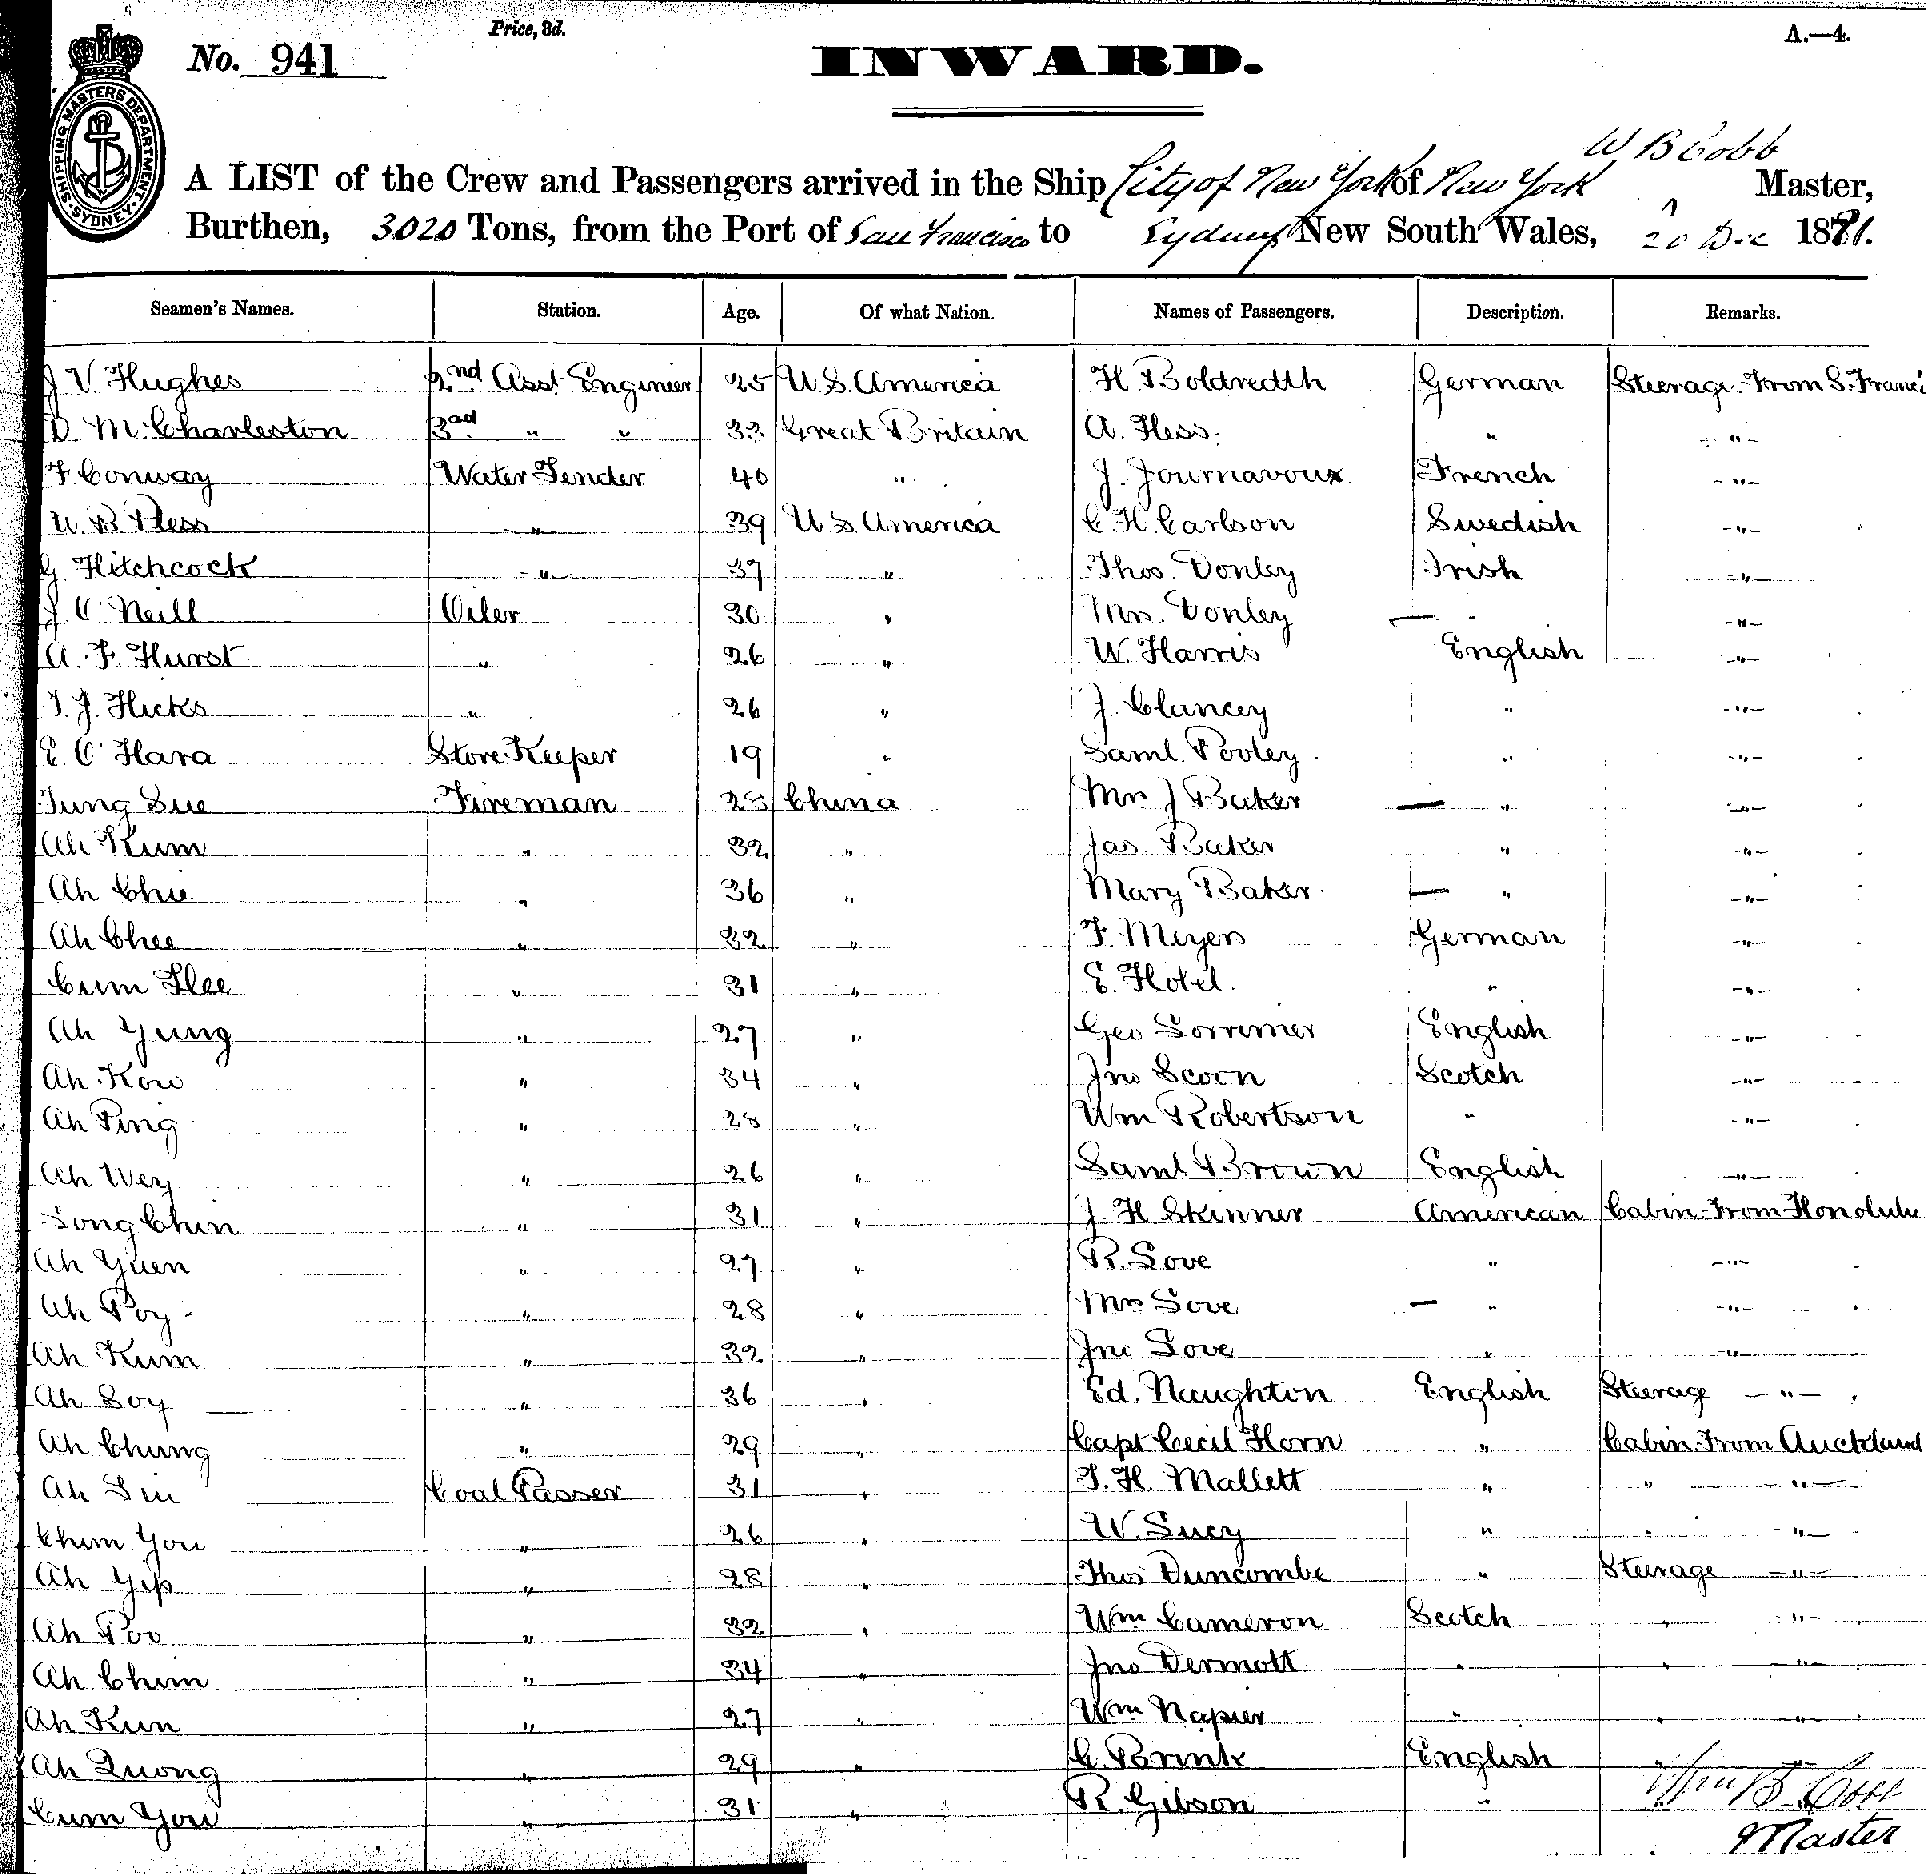 Price, 3d.
A.—4.
No. 941
INWARD.
SHIPPING MASTERS DEPARTMENT SYDNEY
W B Cobb
A LIST of the Crew and Passengers arrived in the Ship City of New York of New York Master,
Burthen, 3020 Tons, from the Port of San Francisco to Sydney New South Wales, 20 Dec 1881.
Seamen's Names. Station. Age. Of what Nation. Names of Passengers. Description. Remarks.
J V Hughes 2nd Asst Engineer 25 U.S. America H Boldredth German Steerage From S. Franci
D McCharleston 3rd " " 33 Great Britain A. Hess. " "
F Conway Water Tender 40 " J. Journavoux French "
" 39 U S America C H Carlson Swedish "
G Hitchcock " 37 " Thos. Donley Irish "
J. O Neill Oiler 30 " Mrs. Donley — "
A. F. Hurst " 26 " W. Harris English "
T. J. Hicks " 26 " J. Clancey " "
E O Hara Store Keeper 19 " Saml. Pooley " "
Tung Sue Fireman 28 China Mrs J Baker — " "
Ah Kum " 32 " Jas Baker " "
Ah Chu " 36 " Mary Baker — " "
Ah Chee " 32 " F. Meyers German "
Cum Hee " 31 " E. Hotel. " "
Ah Yung " 27 " Geo Lorrimer English "
Ah Kow " 34 " Jno Scorn Scotch "
Ah Ping " 28 " Wm Robertson " "
Ah Wey " 26 " Saml Brown English "
Song Chin " 31 " J. H Skinner American Cabin From Honolulu
Ah Yuen " 27 " R. Love " "
Ah Poy " 28 " Mrs Love — " "
Ah Kum " 32 " Jno Love " "
Ah Soy " 36 " Ed. Naughton English Steerage "
Ah Chung " 29 " Capt Cecil Horn " Cabin From Auckland
Ah Sin Coal Passer 31 " T. H. Mallett " " "
Chim You " 26 " W. Lucy " " "
Ah Yip " 28 " Thos Duncombe " Steerage "
Ah Poo " 32 " Wm Cameron Scotch " "
Ah Chim " 34 " Jno Dermott " " "
Ah Kun " 27 " Wm Napier " " "
Ah Quong " 29 " C. Prink English " "
Cum You " 31 " R. Gibson "
Wm B Cobb
Master